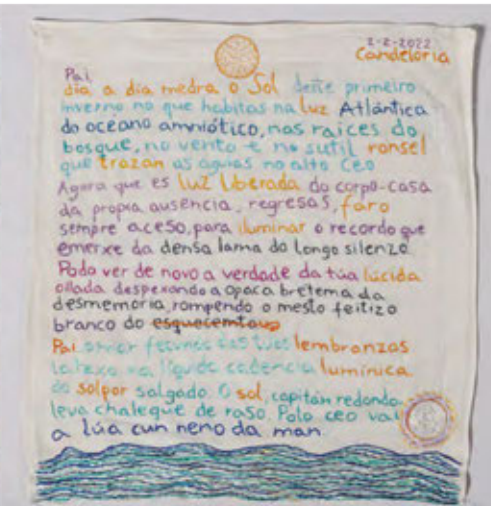 2-2-2022
Candeloria
Pai,
día a día medra o Sol deste primeiro
inverno no que habitas na luz Atlántica
do océano amniótico, nas raíces do
bosque, no vento e no sutil ronsel
que trazan as aguias no alto Ceo
Agora que es luz liberada do corpo-casa
da propia ausencia, regresas, faro
sempre aceso, para iluminar o recordo que
emerxe da densa lama do longo silenzo
Podo ver de novo a verdade da túa lúcida
ollada despexando a opaca bretema da
desmemoria, rompendo o mesto feitizo
branco do
Pai lembranzas
latexo na líquida cadencia lumínica
do solpor salgado. O sol, capitán redondo
leva chaleque de raso. Polo ceo vai
a lúa cun neno da man.